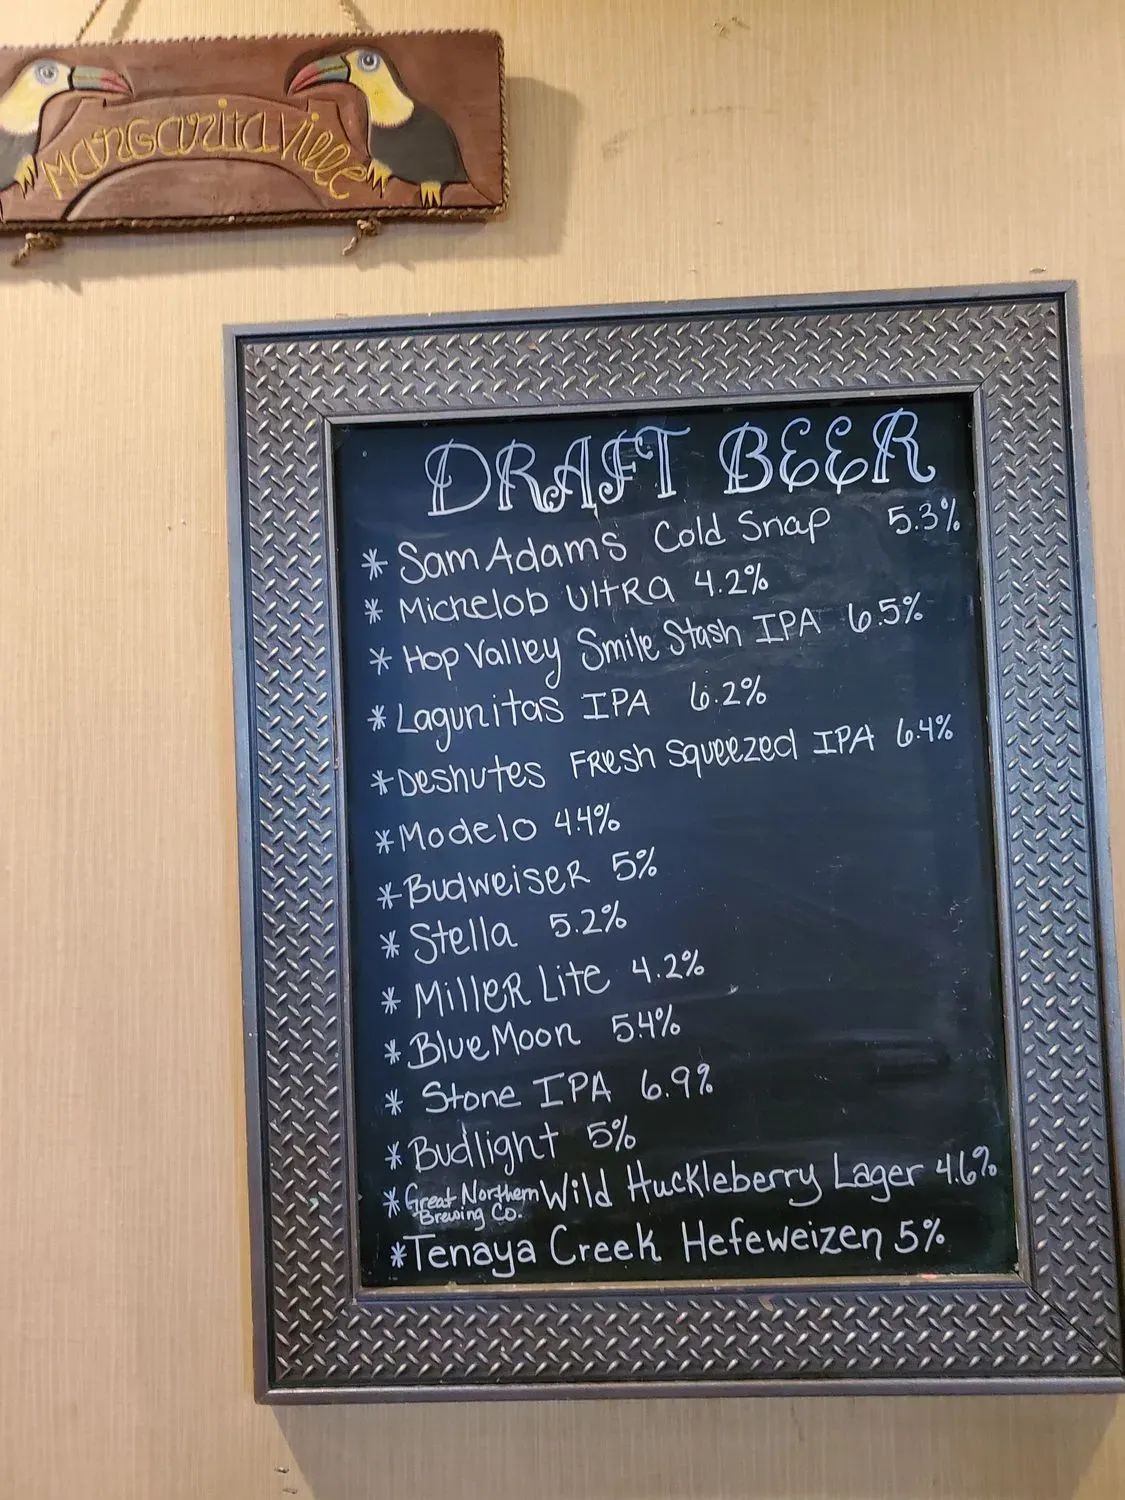 MargaritaVille
DRAFT BEER
* Sam Adams Cold Snap 5.3%
* Michelob UltRa 4.2%
* Hop Valley Smile Stash IPA 6.5%
* Lagunitas IPA 6.2%
* Deshutes FResh Squeezed IPA 6.4%
* Modelo 4.4%
* BudweiseR 5%
* Stella 5.2%
* MilleR Lite 4.2%
* Blue Moon 5.4%
* Stone IPA 6.9%
* Budlight 5%
* Great Northern Brewing Co. Wild Huckleberry Lager 4.6%
* Tenaya Creek Hefeweizen 5%